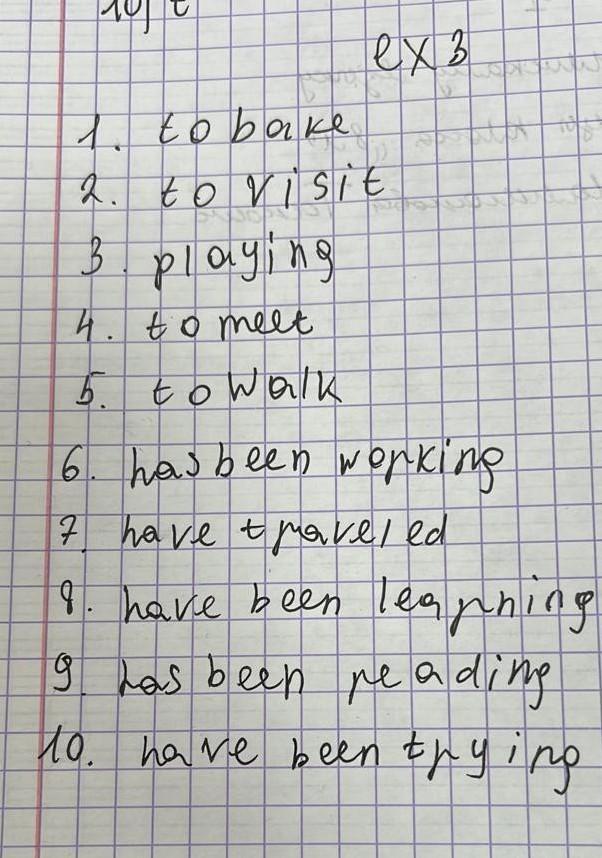 10) t
ex 3
1. to bake
2. to visit
3. playing
4. to meet
5. to walk
6. has been working
7. have traveled
8. have been learning
9. has been reading
10. have been trying